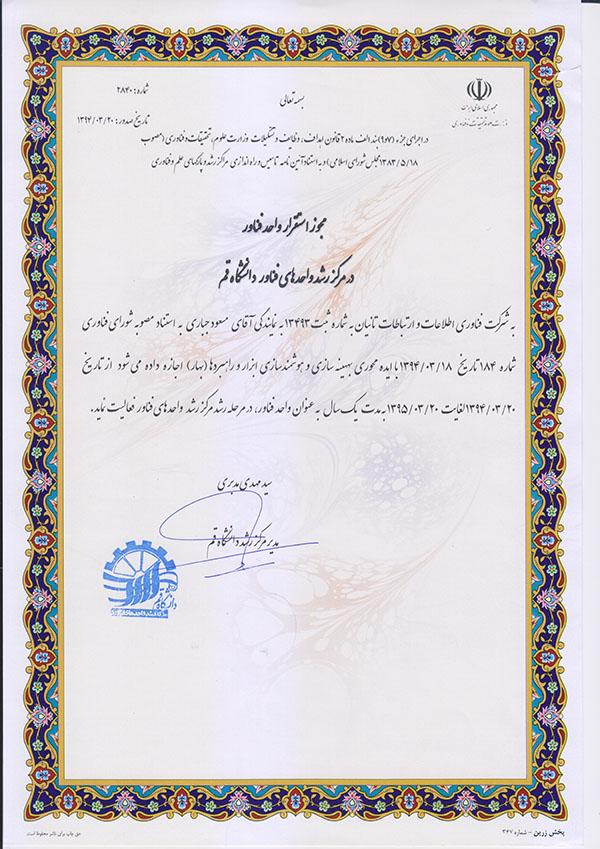 جمهوری اسلامی ایران
وزارت علوم، تحقیقات و فناوری
بسمه تعالی
شماره: ۲۸۴۰
تاریخ صدور: ۱۳۹۴/۰۳/۲۰
در اجرای جزء (۹و۷) بند الف ماده ۲ قانون اهداف، وظایف و تشکیلات وزارت علوم، تحقیقات و فناوری (مصوب
۱۳۸۳/۵/۱۸ مجلس شورای اسلامی) و به استناد آئین نامه تاسیس و راه اندازی مراکز رشد و پارکهای علم و فناوری
مجوز استقرار واحد فناور
در مرکز رشد واحدهای فناور دانشگاه قم
به شرکت فناوری اطلاعات و ارتباطات تانیان به شماره ثبت ۱۳۴۹۳ به نمایندگی آقای مسعود جباری به استناد مصوبه شورای فناوری
شماره ۱۸۴ تاریخ ۱۳۹۴/۰۳/۱۸ با ایده محوری بهینه سازی و هوشمندسازی ابزار و راهبردها (بهار) اجازه داده می شود از تاریخ
۱۳۹۴/۰۳/۲۰ لغایت ۱۳۹۵/۰۳/۲۰ بمدت یک سال به عنوان واحد فناور، در مرحله رشد مرکز رشد واحدهای فناور فعالیت نماید.
سید مهدی مدبری
مدیر مرکز رشد دانشگاه قم
دانشگاه قم
مرکز رشد واحدهای فناوری
پخش زرین - شماره ۳۴۷
حق چاپ برای ناشر محفوظ است